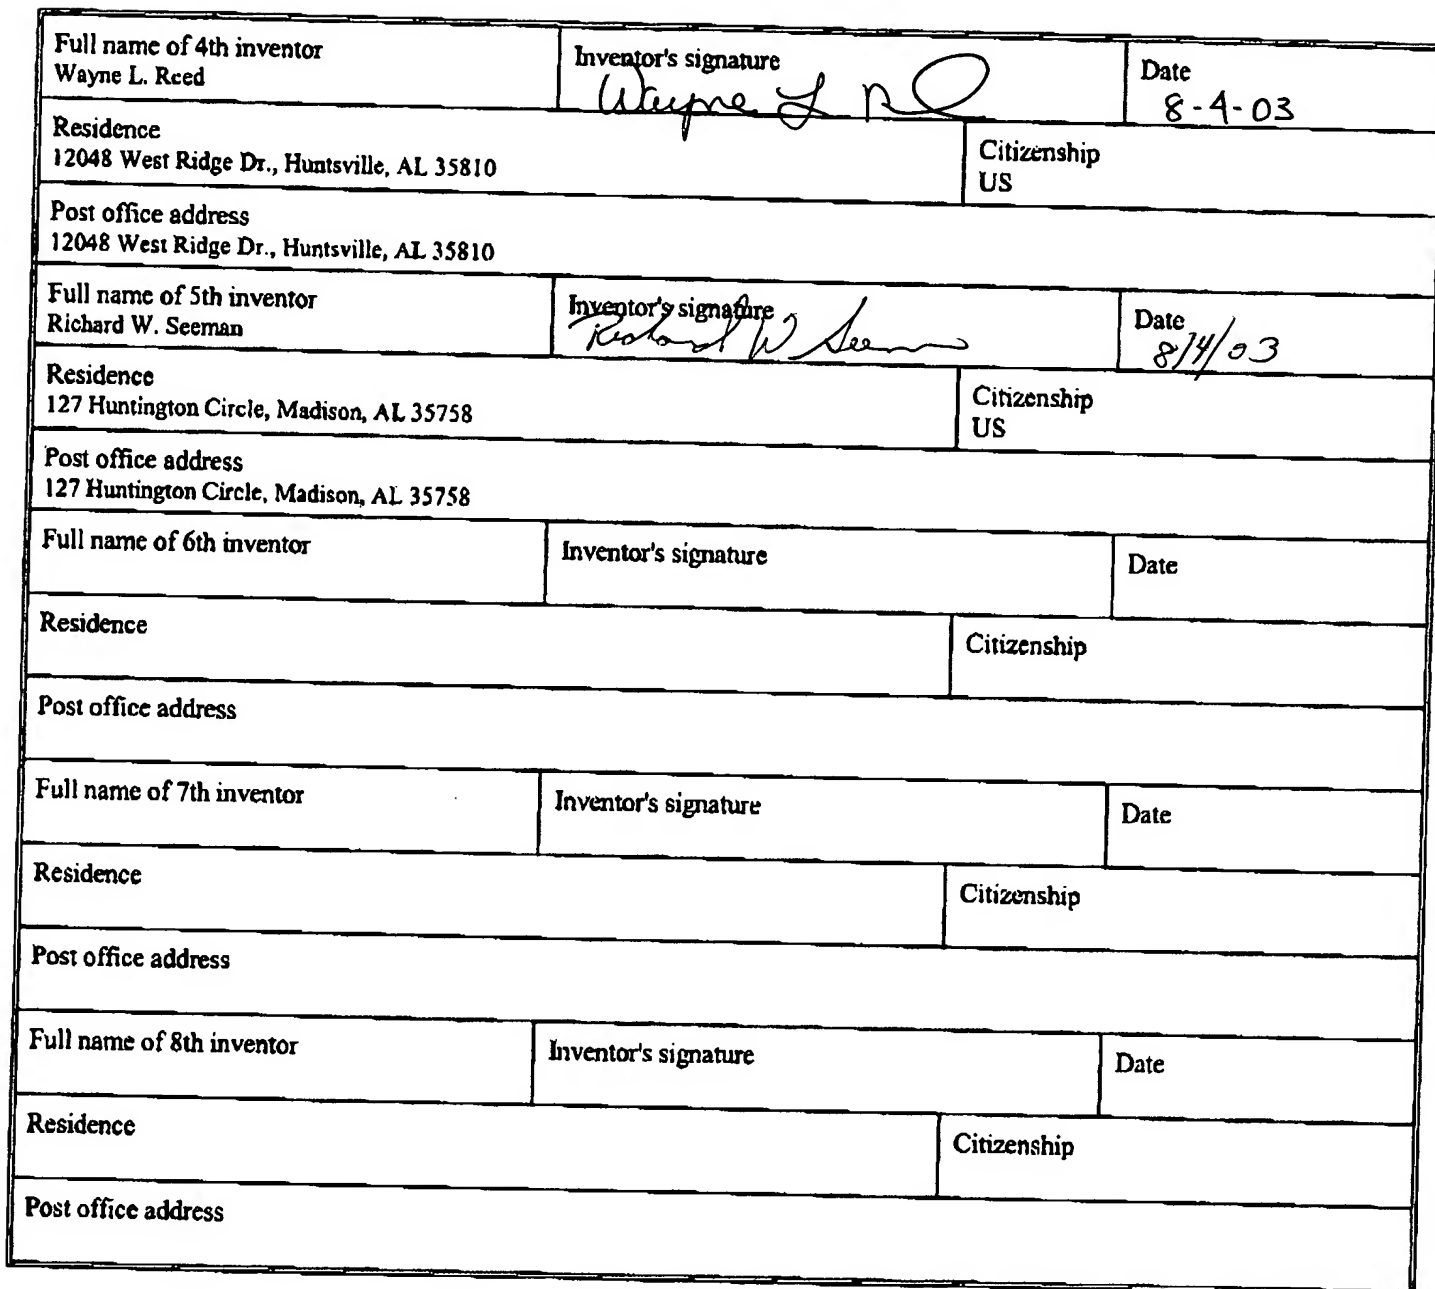 Full name of 4th inventor
Wayne L. Reed
Inventor's signature
Wayne L R
Date
8-4-03
Residence
12048 West Ridge Dr., Huntsville, AL 35810
Citizenship
US
Post office address
12048 West Ridge Dr., Huntsville, AL 35810
Full name of 5th inventor
Richard W. Seeman
Inventor's signature
Richard W Seeman
Date
8/4/03
Residence
127 Huntington Circle, Madison, AL 35758
Citizenship
US
Post office address
127 Huntington Circle, Madison, AL 35758
Full name of 6th inventor
Inventor's signature
Date
Residence
Citizenship
Post office address
Full name of 7th inventor
Inventor's signature
Date
Residence
Citizenship
Post office address
Full name of 8th inventor
Inventor's signature
Date
Residence
Citizenship
Post office address